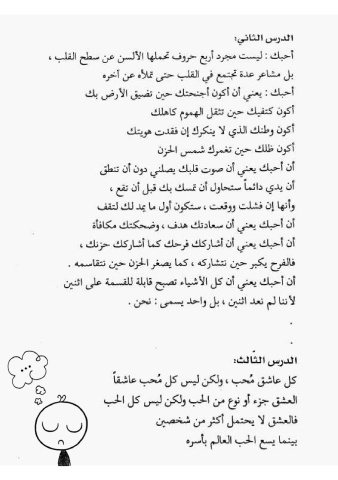 الدرس الثاني:
أحبك : ليست مجرد أربع حروف تحملها الألسن عن سطح القلب ،
بل مشاعر عدة تجتمع في القلب حتى تملأه عن أخره
أحبك : يعني أن أكون أجنحتك حين تضيق الأرض بك
أكون كتفيك حين تثقل الهموم كاهلك
أكون وطنك الذي لا ينكرك إن فقدت هويتك
أكون ظلك حين تغمرك شمس الحزن
أن أحبك يعني أن صوت قلبك يصلني دون أن تنطق
أن يدي دائماً ستحاول أن تمسك بك قبل أن تقع ،
وأنها إن فشلت ووقعت ، ستكون أول ما يمد لك لتقف
أن أحبك يعني أن سعادتك هدف ، وضحكتك مكافأة
أن أحبك يعني أن أشاركك فرحك كما أشاركك حزنك ،
فالفرح يكبر حين نتشاركه ، كما يصغر الحزن حين نتقاسمه .
أن أحبك يعني أن كل الأشياء تصبح قابلة للقسمة على اثنين
لأننا لم نعد اثنين ، بل واحد يسمى : نحن .
.
.
الدرس الثالث:
كل عاشق مُحب ، ولكن ليس كل مُحب عاشقاً
العشق جزء أو نوع من الحب ولكن ليس كل الحب
فالعشق لا يحتمل أكثر من شخصين
بينما يسع الحب العالم بأسره